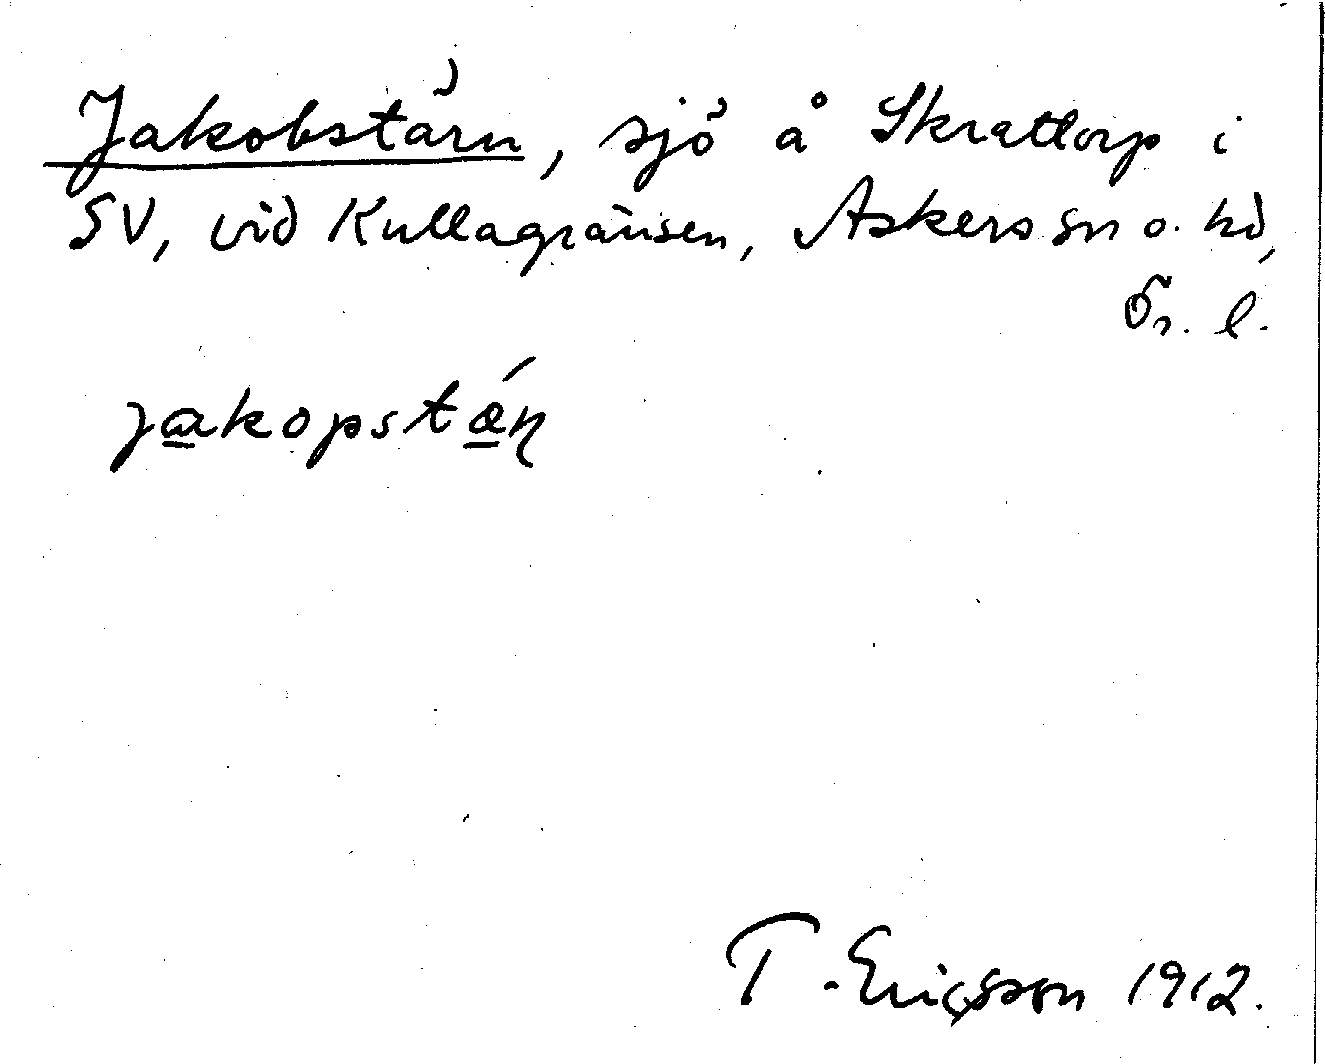 Jakobstärn, sjö å Skrattorp i
SV, vid Kullagränsen, Askers sn o. hd,
Ör. l.
jakopstǽɳ
T. Ericsson 1912.